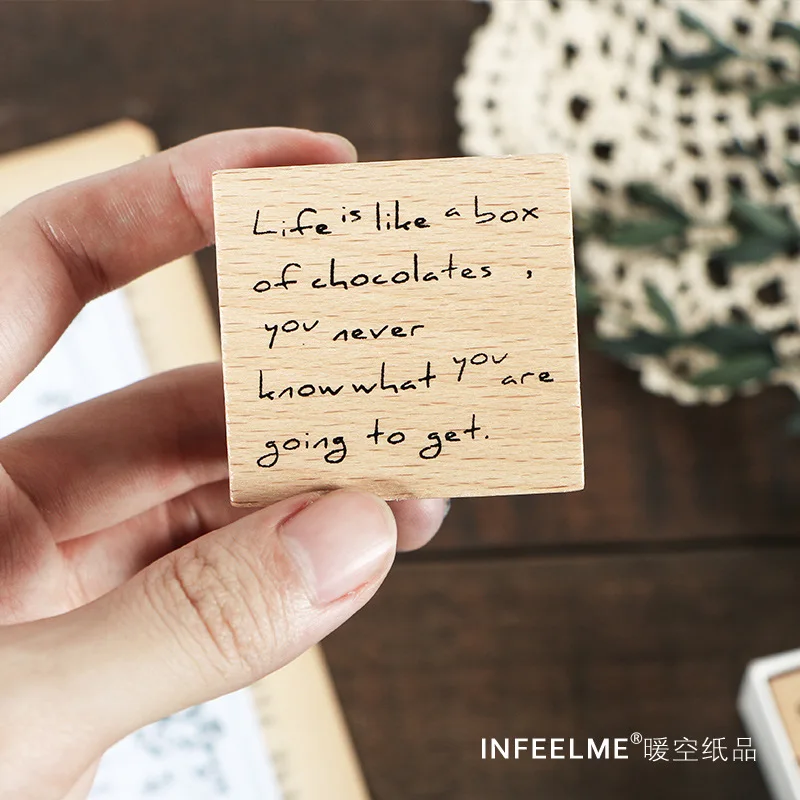 Life is like a box
of chocolates ,
you never
know what you are
going to get.
INFEELME®暖空纸品